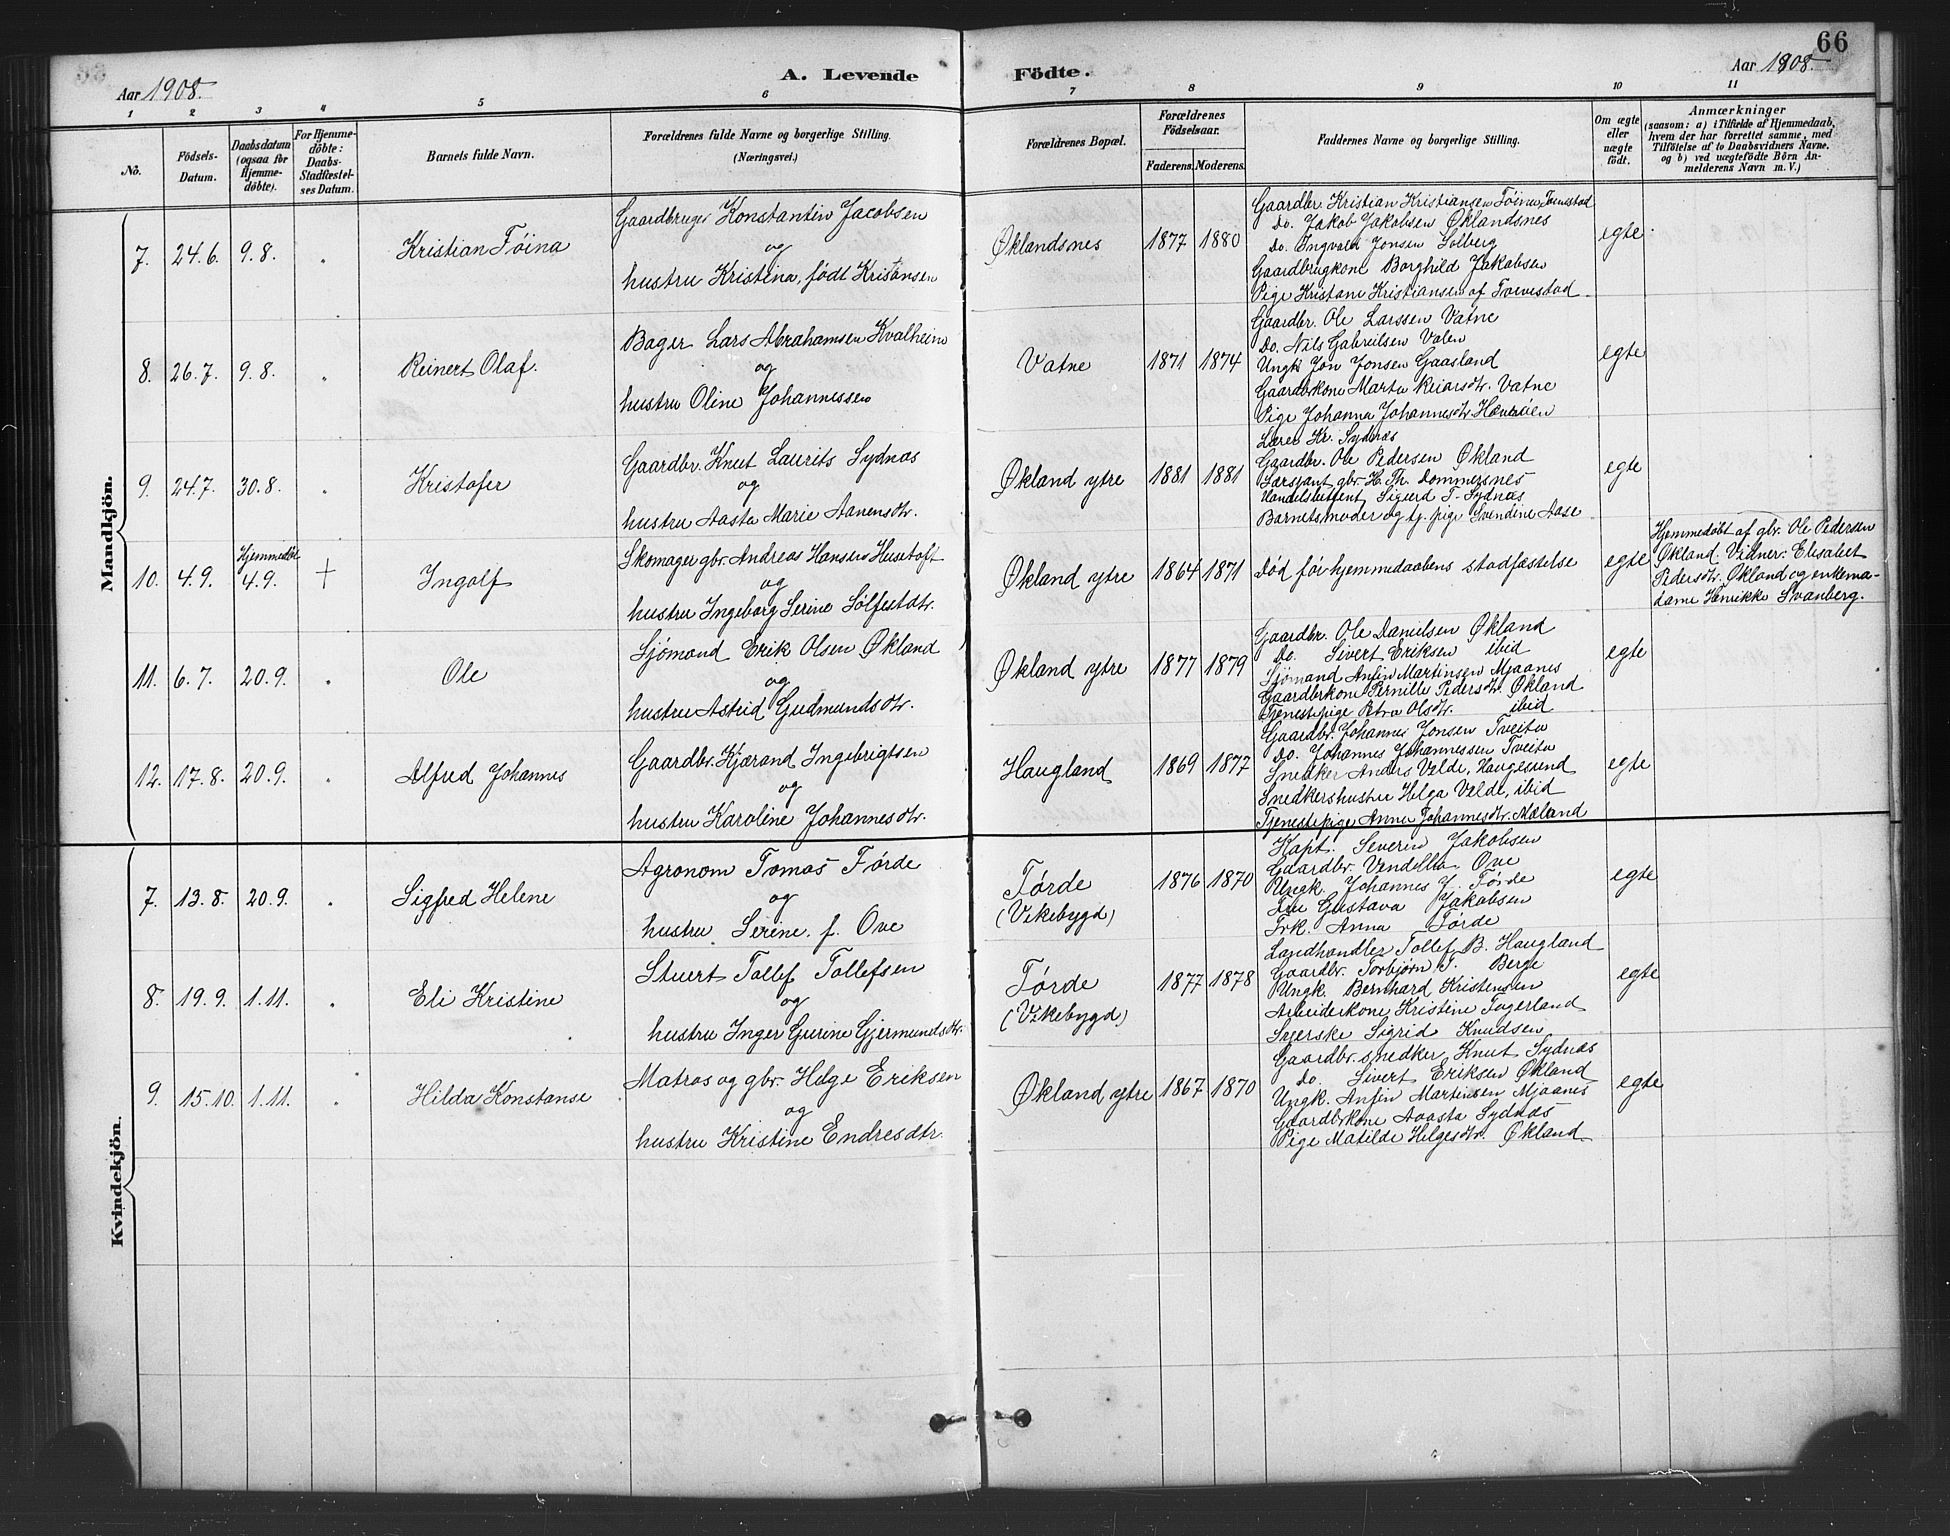 66
Aar 1908.
A. Levende Födte.
Aar 1908.
1 2 3 4 5 6 7 8 9 10 11
No.
Födsels-Datum.
Daabsdatum (ogsaa for Hjemmedöbte).
For Hjemmedöbte: Daabs-Stadfæstelses Datum.
Barnets fulde Navn.
Forældrenes fulde Navne og borgerlige Stilling.
(Næringsvei.)
Forældrenes Bopæl.
Forældrenes Födselsaar.
Faderens. Moderens.
Faddernes Navne og borgerlige Stilling.
Om ægte eller uægte födt.
Anmærkninger
(saasom: a) i Tilfælde af Hjemmedaab, hvem der har forrettet samme, med Tilföielse af to Daabsvidners Navne. og b) ved uægtefödte Börn Anmelderens Navn m. V.)
Mandkjön.
7. 24.6. 9.8. " Kristian Tøina
Gaardbruger Konstantin Jacobsen
og
hustru Kristina, født Kristansen
Øklandsnes 1877 1880
Gaardbr. Kristian Kristiansen Tøina, Toevestad
Do. Jakob Jakobsen Øklandsnes
Do. Ingvald Jonsen Solberg
Gaardbrugkone Borghild Jakobsen
Pige Kristane Kristiansen af Toevestad
egte
8. 26.7. 9.8. " Reinert Olaf.
Bager Lars Abrahamsen Kvalheim
og
hustru Oline Johannessen
Vatne 1871 1874
Gaardbr. Ole Larssen Vatne
Do. Nils Gabrielsen Valen
Ungk Jon Jonsen Gaasland
Gaardbrkone Marta Vatne
Pige Johanna Johannesdtr.
egte
9. 24.7. 30.8. " Kristofer
Gaardbr. Knut Laurits Sydnas
og
hustru Aasta Marie Aanensdtr.
Økland ytre 1881 1881
Lærer Kr. Sydnæs
Gaardbr. Ole Pedersen Økland
Sersjant gbr. H. Th. Dommersnes
Handelsbetjent Sigurd T. Sydnas
Barnets moder og tj. pige Svendine Aase
egte
10. 4.9. Hjemmedøbt 4.9. + Ingolf
Skomager gbr. Andreas Hansen Husetoft
og
hustru Ingeborg Serine Sølfestdtr.
Økland ytre 1864 1871
Død før hjemmedaabens stadfæstelse
egte
Hjemmedøbt af gbr. Ole Pedersen
Økland. Vidner: Elisabet
Pedersdtr. Økland og enkema-
dame Henrikke Svanberg.
11. 6.7. 20.9. " Ole
Sjømand Erik Olsen Økland
og
hustru Astrid Gudmundsdtr.
Økland ytre 1877 1879
Gaardbr. Ole Danielsen Økland
Do. Sivert Eriksen ibid
Sjømand Anfin Martinsen Mjaanes
Gaardbrkone Pernille Pedersdtr. Økland
Tjenestepige Petra Olsdtr. ibid
egte
12. 17.8. 20.9. " Alfred Johannes
Gaardbr. Kjærand Ingebrigtsen
og
hustru Karoline Johannesdtr.
Haugland 1869 1877
Gaardbr. Johannes Jonsen Tveita
Do. Johannes Johannessen Tveita
Snedker Anders Velde, Haugesund
Snedkershustru Helga Velde, ibid
Tjenestepige Anna Johannesdtr. Mæland
egte
Kvindekjön.
7. 13.8. 20.9. " Sigfred Helene
Agronom Tomas Førde
og
hustru Serine. f. Ove
Førde
(Vikebygd) 1876 1870
Kapt. Severin Jakobsen
Gaardbr. Vendella Ove
Ungk. Johannes J. Førde
Fru Gustava Jakobsen
Frk. Anna Førde
egte
8. 19.9. 1.11. " Eli Kristine
Stuert Tollef Tollefsen
og
hustru Inger Gurine Gjermundsdtr.
Førde
(Vikebygd) 1877 1878
Landhandler Tollef B. Haugland
Gaardbr. Torbjørn T. Berge
Ungk. Bernhard Kristensen
Arbeiderkone Kristine Fagerland
Syerske Sigrid Knudsen
egte
9. 15.10. 1.11. " Hilda Konstanse
Matros og gbr. Helge Eriksen
og
hustru Kristine Endresdtr.
Økland ytre 1867 1870
Gaardbr. snedker Knut Sydnas
Do. Sivert Eriksen Økland
Ungk. Anfin Martinsen Mjaanes
Gaardbrkone Aasta Sydnas
Pige Matilde Helgesdtr. Økland
egte